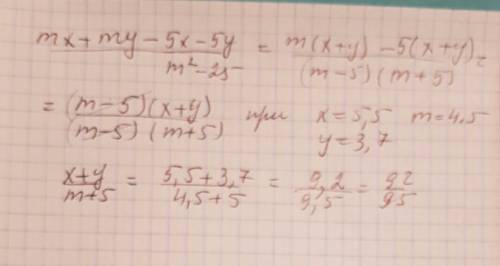 mx+my-5x-5y / m²-25 = m(x+y)-5(x+y) / (m-5)(m+5) =
= (m-5)(x+y) / (m-5)(m+5) при x=5,5 m=4.5
y=3,7
x+y / m+5 = 5,5+3,7 / 4,5+5 = 9,2 / 9,5 = 92 / 95